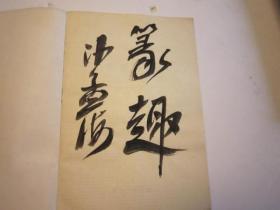 篆趣
沙孟海